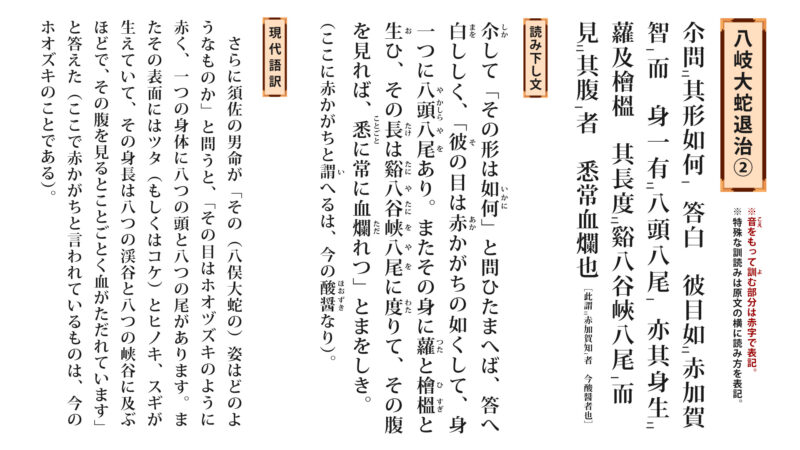 八岐大蛇退治②
※音をもって訓む部分は赤字で表記。
※特殊な訓読みは原文の横に読み方を表記。
尒問二其形如何一　答白　彼目如二赤加賀
智一而　身一有二八頭八尾一　亦其身生二
蘿及檜榲　其長度二谿八谷峽八尾一而
見二其腹一者　悉常血爛也〔此謂二赤加賀知一者　今酸醤者也〕
読み下し文
尒して「その形は如何」と問ひたまへば、答へ
白ししく、「彼の目は赤かがちの如くして、身
一つに八頭八尾あり。またその身に蘿と檜榲と
生ひ、その長は谿八谷峽八尾に度りて、その腹
を見れば、悉に常に血爛れつ」とまをしき。
（ここに赤かがちと謂へるは、今の酸醤なり）。
現代語訳
さらに須佐の男命が「その（八俣大蛇の）姿はどのよ
うなものか」と問うと、「その目はホオヅズキのように
赤く、一つの身体に八つの頭と八つの尾があります。ま
たその表面にはツタ（もしくはコケ）とヒノキ、スギが
生えていて、その身長は八つの渓谷と八つの峡谷に及ぶ
ほどで、その腹を見るとことごとく血がただれています」
と答えた（ここで赤かがちと言われているものは、今の
ホオズキのことである）。